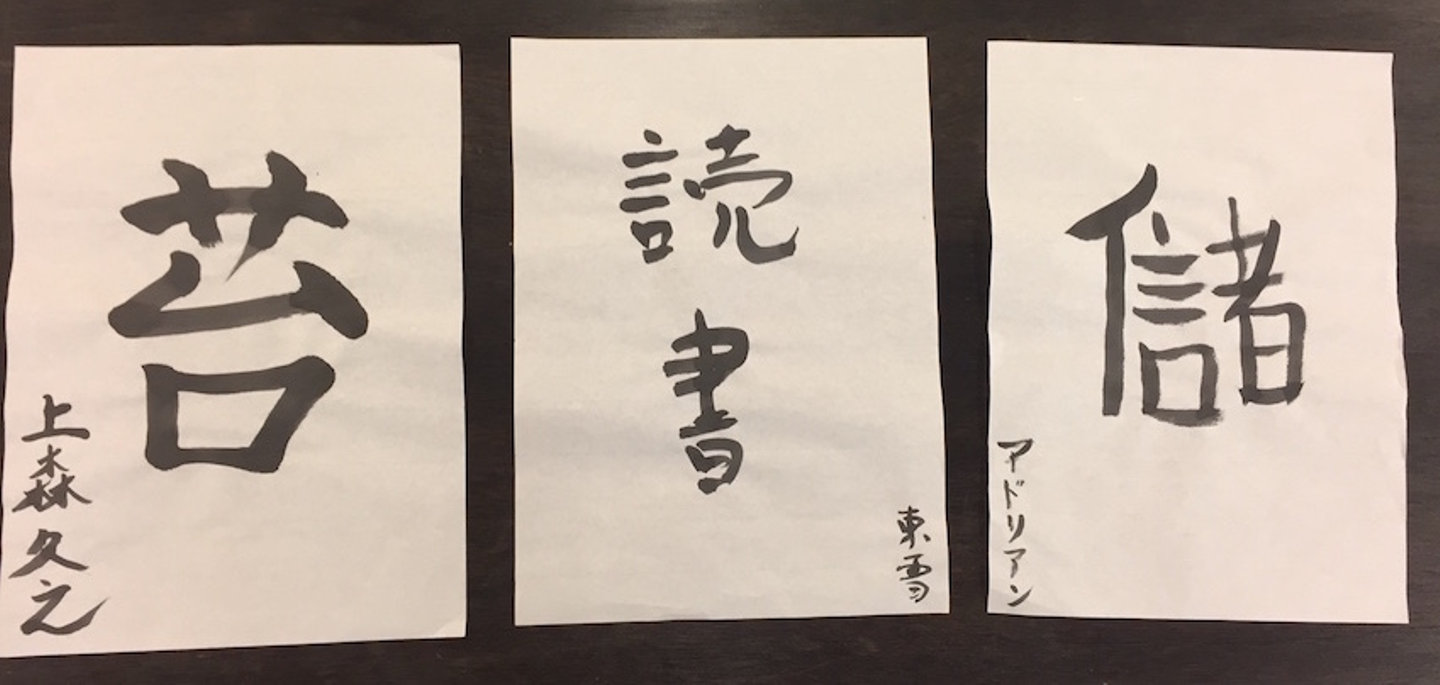 苔
上森久之
読書
東雪
儲
アドリアン